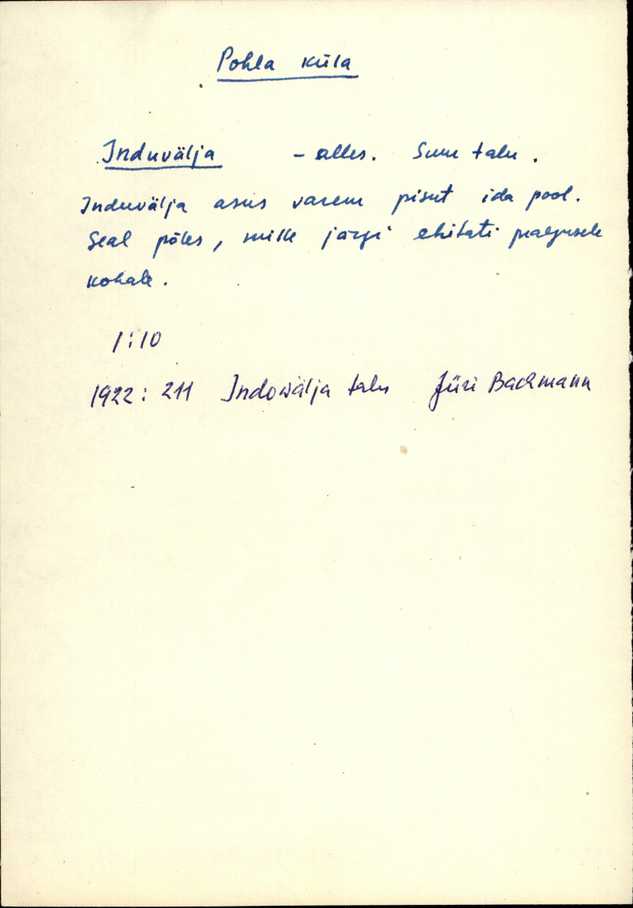 Pohla küla
Induvälja – alles. Suur talu.
Induvälja asus varem pisut ida pool.
Seal põles, mille järgi ehitati praegusele
kohale.
1:10
1922: 211 Indowälja talu Jüri Bachmann